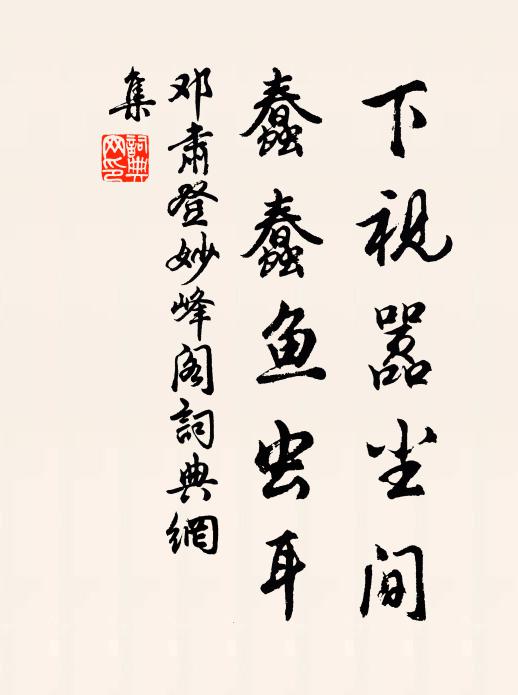 下视嚣尘间
蠢蠢鱼虫耳
邓肃登妙峰阁詞典網
集
詞典网印